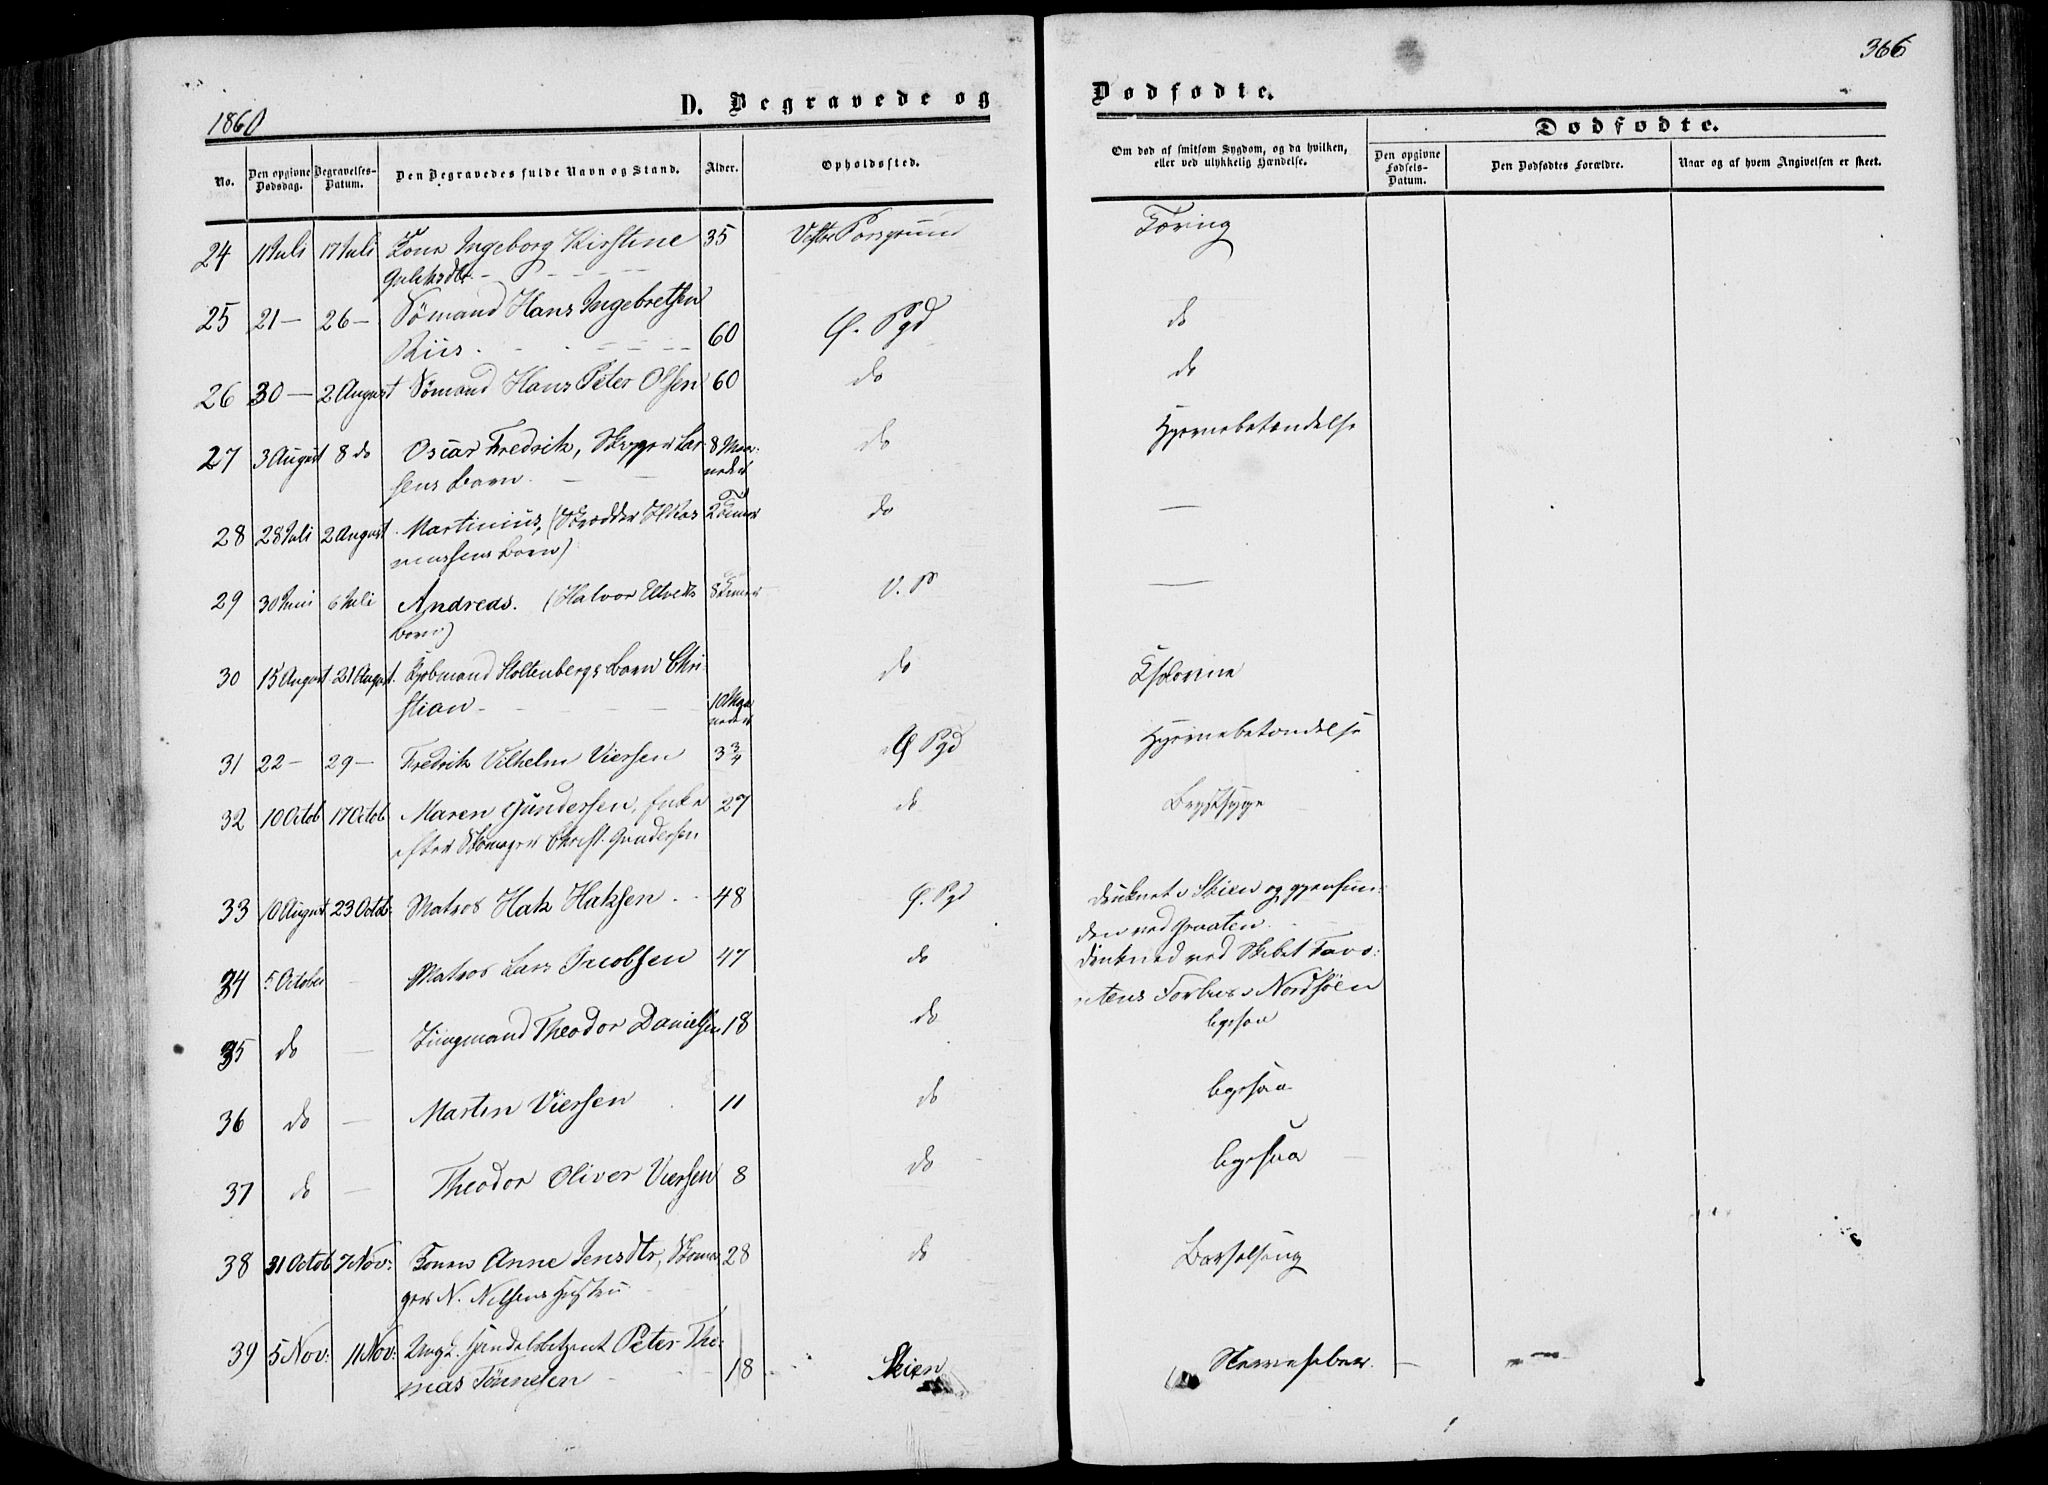 366
1860
D. Begravede og
Dødfødte.
Dødfødte.
No.
Den opgivne Dødsdag.
Begravelses-Datum.
Den Begravedes fulde Navn og Stand.
Alder.
Opholdssted.
Om død af smitsom Sygdom, og da hvilken, eller ved ulykkelig Hændelse.
Den opgivne Fødsels-Datum.
Den Dødfødtes Forældre.
Naar og af hvem Angivelsen er skeet.
24 11 Juli 17 Juli Kone Ingeborg Kirstine 35 Vestre Porsgrund Tæring
25 21 — 26 — Sømand Hans Ingebretsen
Riis 60 Ø. Pgd do
26 30 — 2 August Sømand Hans Peter Olsen 60 do do
27 3 August 8 do Oscar Fredrik, Skipper Lar- 8 Maa- do Hjernebetændelse
sens Barn neder
28 28 Juli 2 August Martinius, (Skrædder 2 Timer do —
Barn)
29 30 Juni 6 Juli Andreas. (Halvor 8 Timer V. P —
Barn)
30 15 August 21 August Kjøbmand Stoltenbergs Barn Chri- do
stian 10 Maaneder
31 22 — 29 — Fredrik Vilhelm Viersen 3 3/4 Ø Pgd Hjernebetændelse
32 10 Octob 17 Octob Maren Gundersen, Enke 27 do Brystsyge
efter Skomager Christ. Gundersen
33 10 August 23 Octob. Matros Hak Haksen 48 Ø. Pgd druknet i Skien og gjenfun-
den ved Graaten.
34 5 October — Matros Lars Jacobsen 47 do druknet ved Skibet Favo-
ritens Forlis i Nordsøen
35 do — Jungmand Theodor Danielsen 18 do ligesaa
36 do — Marten Viersen 11 do ligesaa
37 do — Theodor Oliver Viersen 8 do ligesaa
38 31 Octob 7 Nov: Konen Anne Jensdtr, Skoma- 28 do Barselseng
ger N. Nilsens Hustru
39 5 Nov: 11 Nov: Ungk. Handelsbetjent Peter Tho-
mas Tønnesen 18 Skien Nervefeber